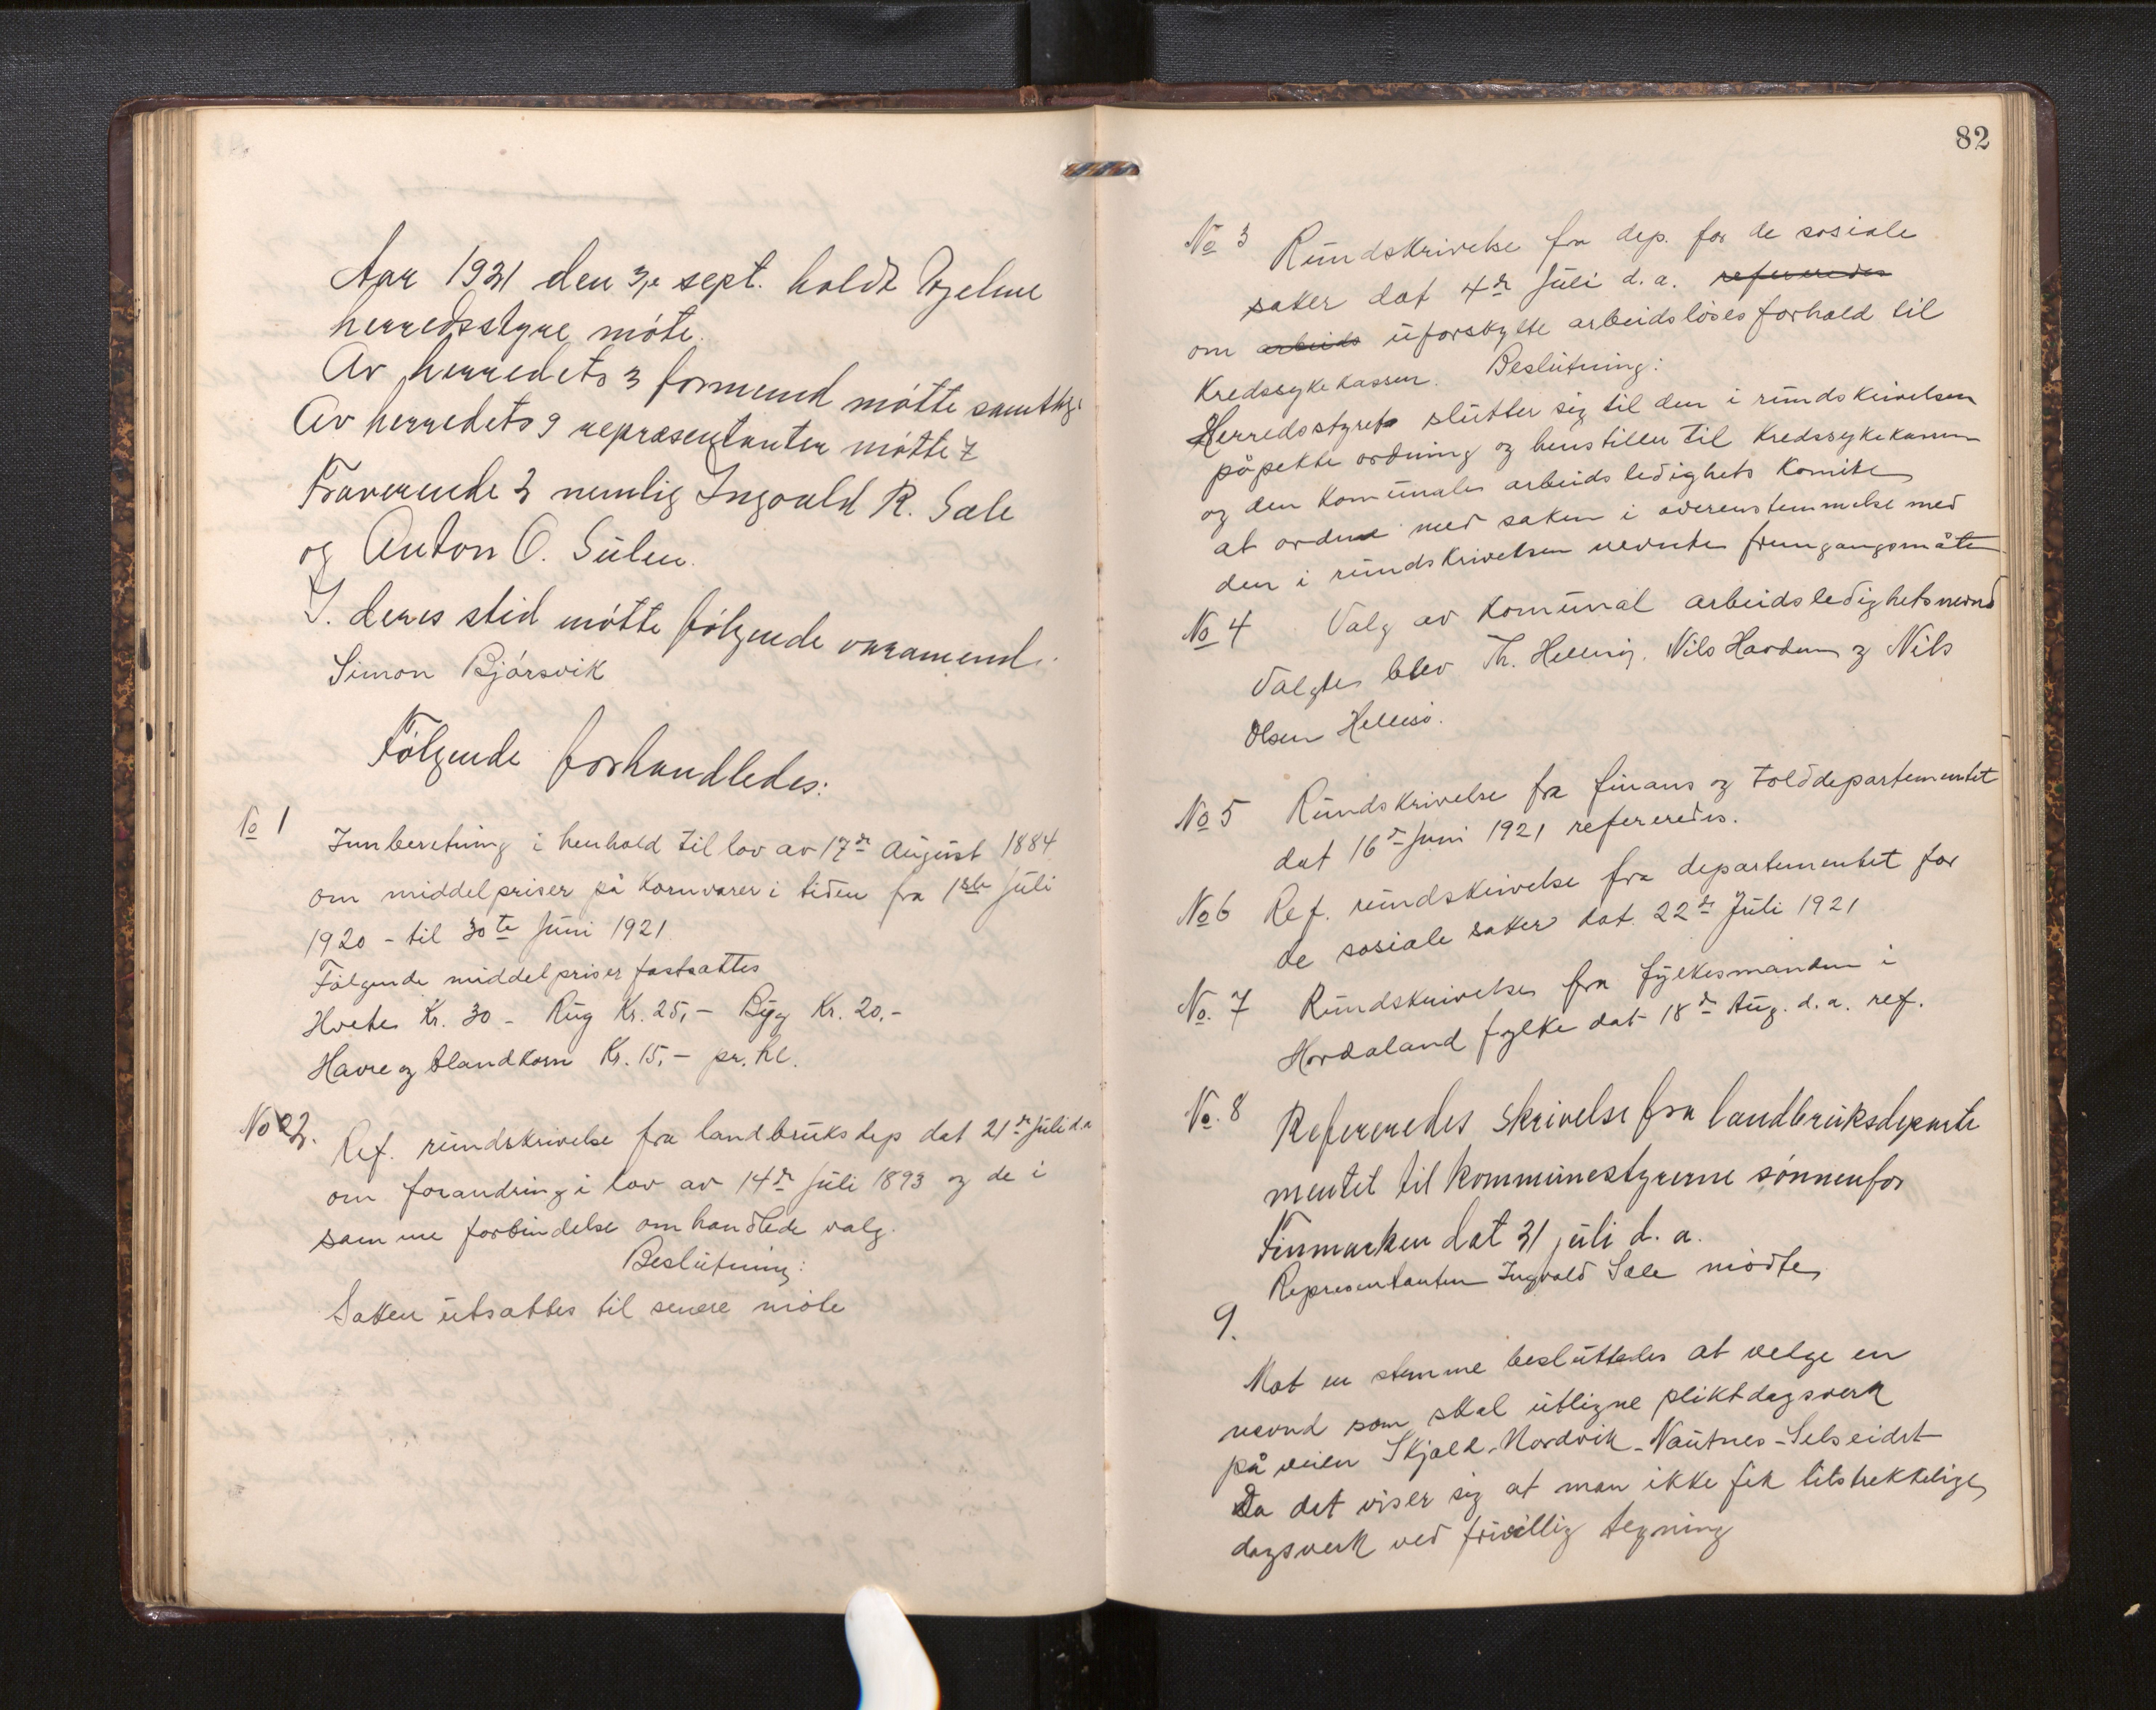 Aar 1921 den 3,e sept. holdt Hjelme
herredsstyre møte.
Av herredets 3 formend møtte samtlige
Av herredets 9 repræsentanter møtte 7
Fraverende 2 nemlig Ingvald R. Sæle
og Anton O. Sulen.
I. deres sted møtte følgende varamend.
Simon Bjørsvik
Følgende forhandledes:
No 1
Innberetning i henhold til lov av 17de August 1884
om middelpriser på kornvarer i tiden fra 1ste Juli
1920 - til 30te Juni 1921
Følgende middelpriser fastsattes
Hvete Kr. 30 - Rug Kr. 25,- Byg Kr. 20,-
Havre og blandkorn Kr. 15,- pr. hl.
No 2.
Ref. rundskrivelse fra landbruksdep dat 21de Juli d.a
om forandring i lov av 14de Juli 1893 og de i
samme forbindelse omhandlede valg.
Beslutning:
Saken utsattes til senere møte
82
No 3
Rundskrivelse fra dep. for de sosiale
saker dat 4de Juli d.a. refereredes
om arbeids uforskylte arbeidsløses forhold til
Kredssykekassen. Beslutning:
Herredsstyret slutter sig til den i rundskrivelsen
påpekte ordning og henstiller til Kredssykekassen
og den Komunale arbeidsledighets Komite
at ordne med saken i overenstemmelse med
den i rundskrivelsen nevnte fremgangsmåte
No 4 Valg av Komunal arbeidsledighetsnevnd
Valgte blev Th. Hellesøy. Nils Hardum og Nils
Olsen Hellesø.
No 5 Rundskrivelse fra finans og tolddepartementet
dat 16de Juni 1921 refereredes.
No 6 Ref. rundskrivelse fra departementet for
de sosiale saker dat. 22de Juli 1921
No. 7 Rundskrivelse fra fylkesmanden i
Hordaland fylke dat 18de Aug. d.a. ref.
No. 8 Refereredes skrivelse fra landbruksdeparte
mentet til kommunestyrerne sønnenfor
Finmarken dat 31 juli d. a.
Representanten Ingvald Sæle mødte
9.
Mot en stemme besluttedes at velge en
nevnd som skal utligne pliktdagsverk
på veien Skjold - Nordvik - Nautnes - Selseidet
Da det viser sig at man ikke fik tilstrekkelige
dagsverk ved frivillig tegning